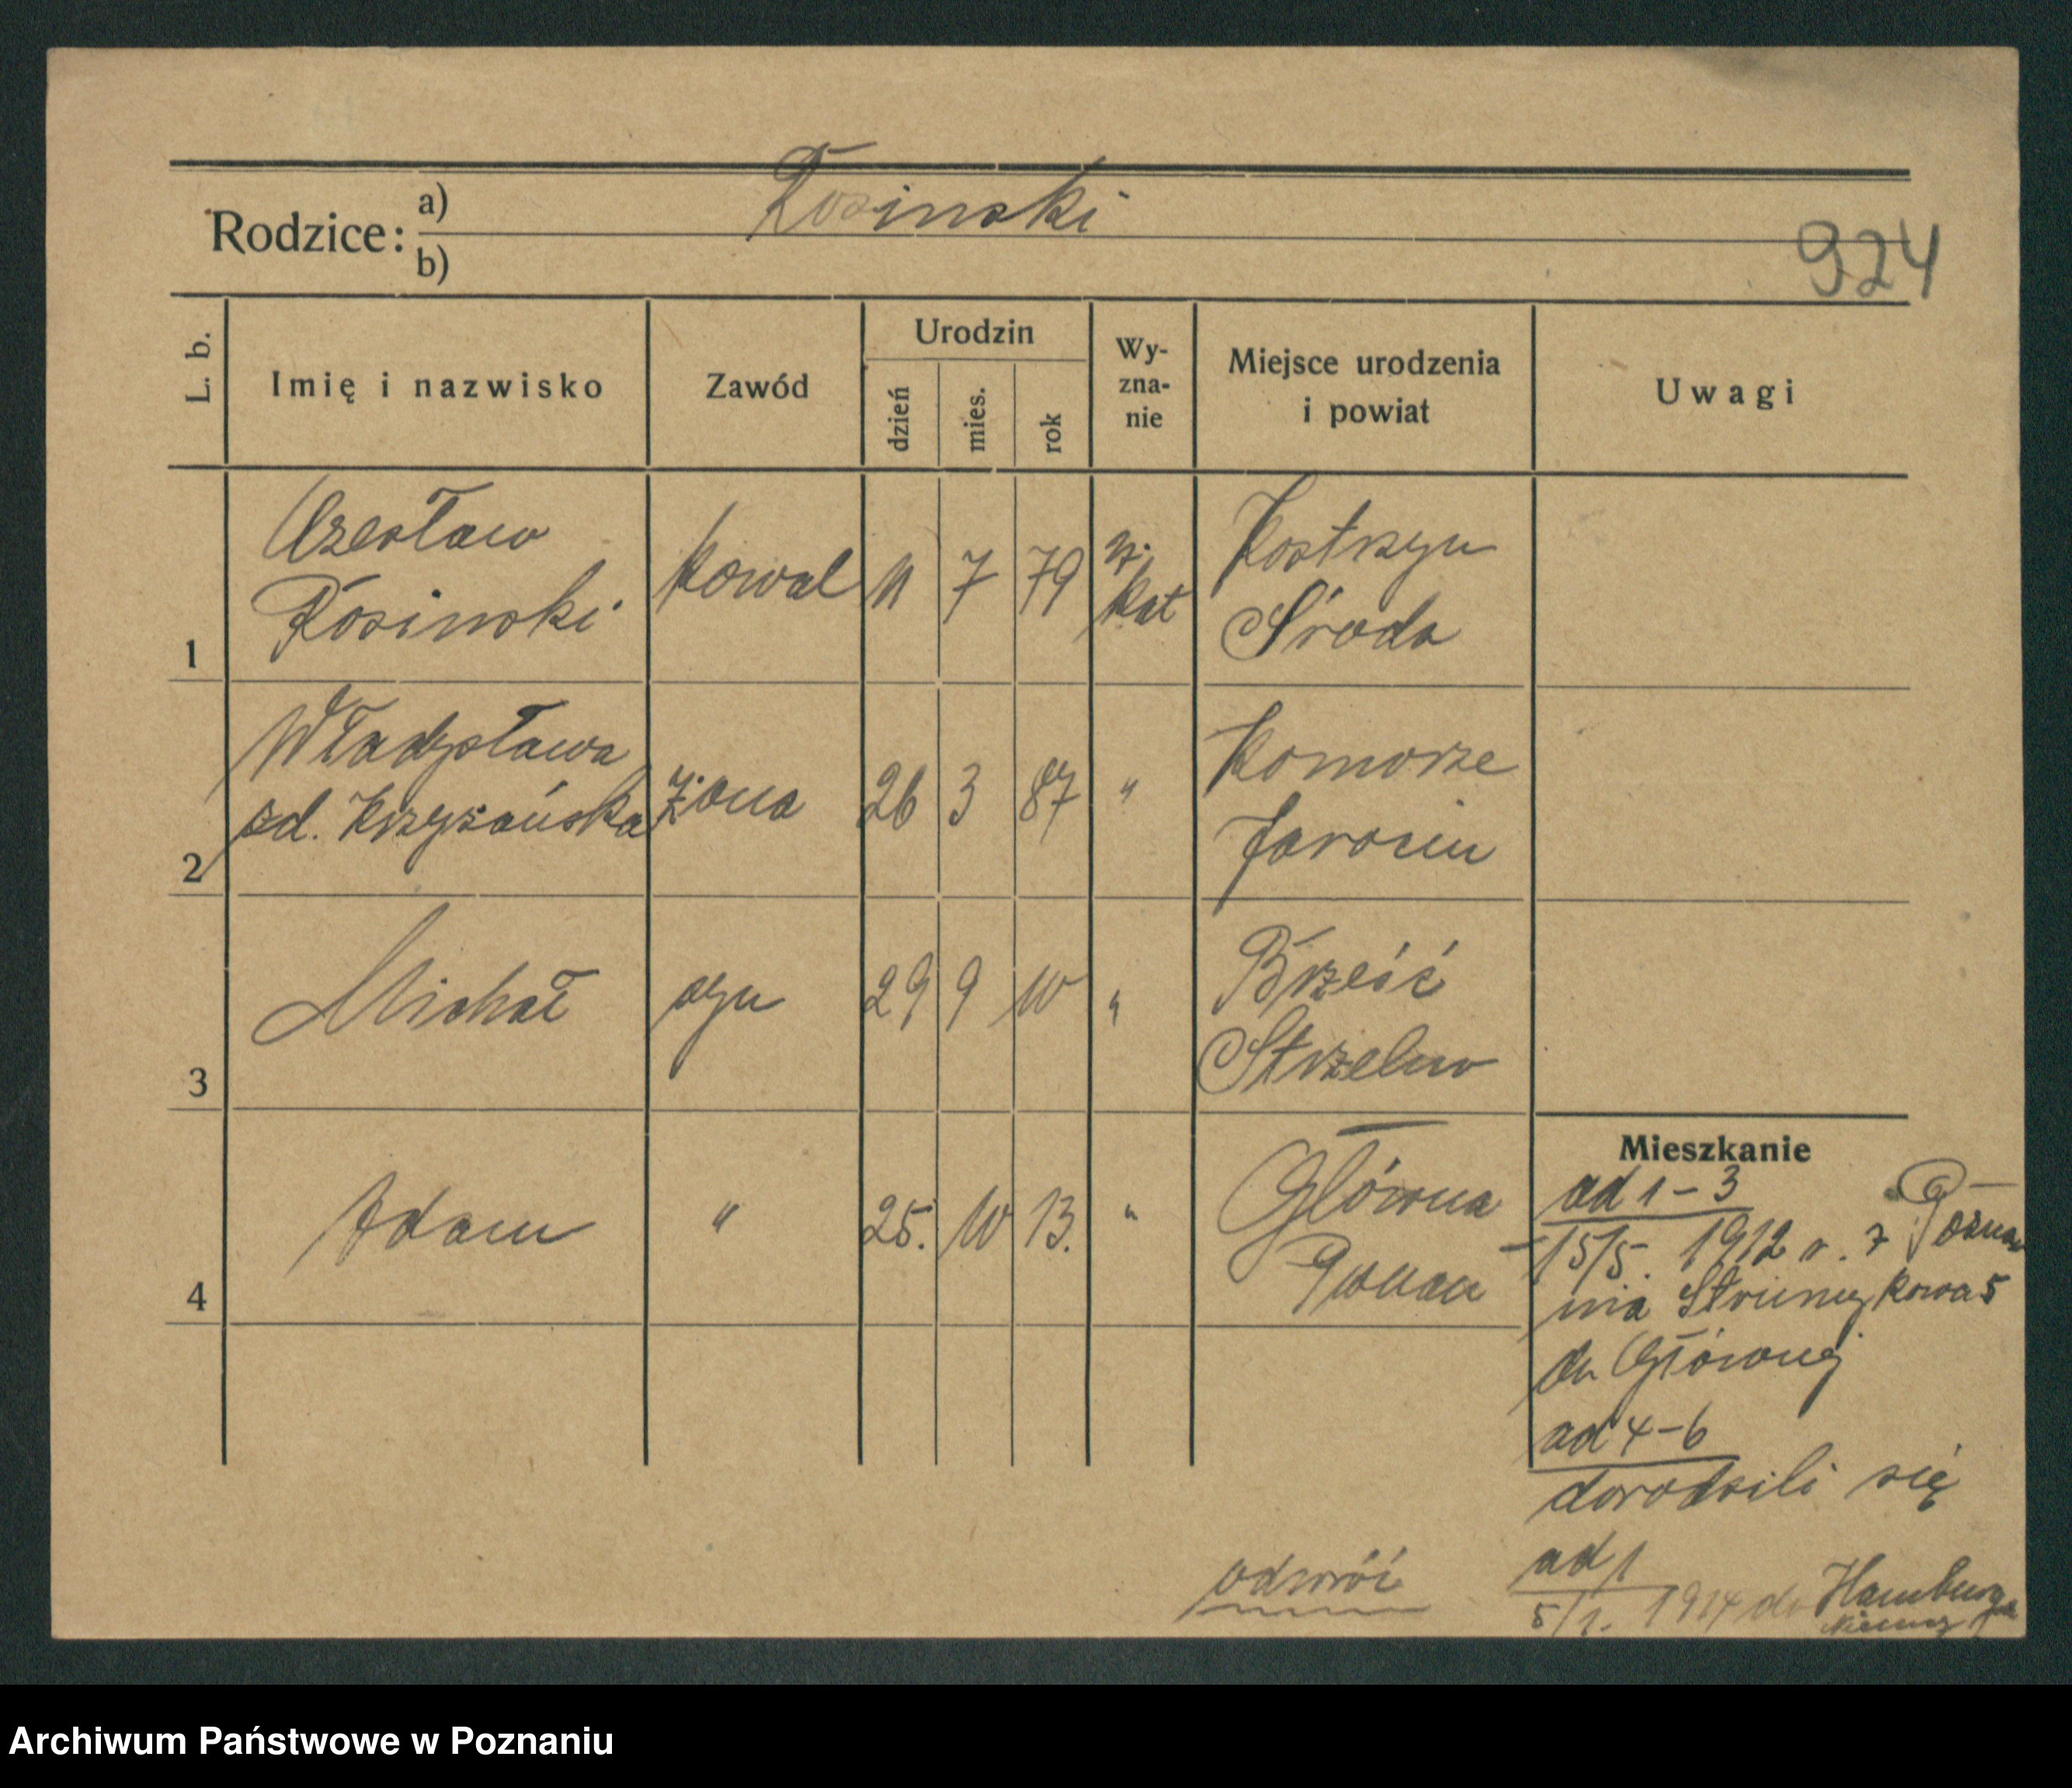 Rosinski
Rodzice: a)
b)
924
L. b.
Imię i nazwisko
Zawód
Urodzin
dzień
mies.
rok
Wy-
zna-
nie
Miejsce urodzenia
i powiat
Uwagi
1
Czesław
Rosinski
kowal
11
7
79
rz.
kat
Kostrzyn
Środa
2
Władysława
zd. Krzyżańska
żona
26
3
87
"
Komorze
Jarocin
3
Michał
syn
29
9
10
"
Brześć
Strzelno
4
Adam
"
25.
10
13.
"
Główna
Poznań
Mieszkanie
ad 1-3
15/5. 1912 r. z Pozna
nia Strumykowa 5
do Głównej
ad 4-6
dorodzili się
ad 1
5/1. 1914 do Hamburga
Niemcy
odwróć
Archiwum Państwowe w Poznaniu